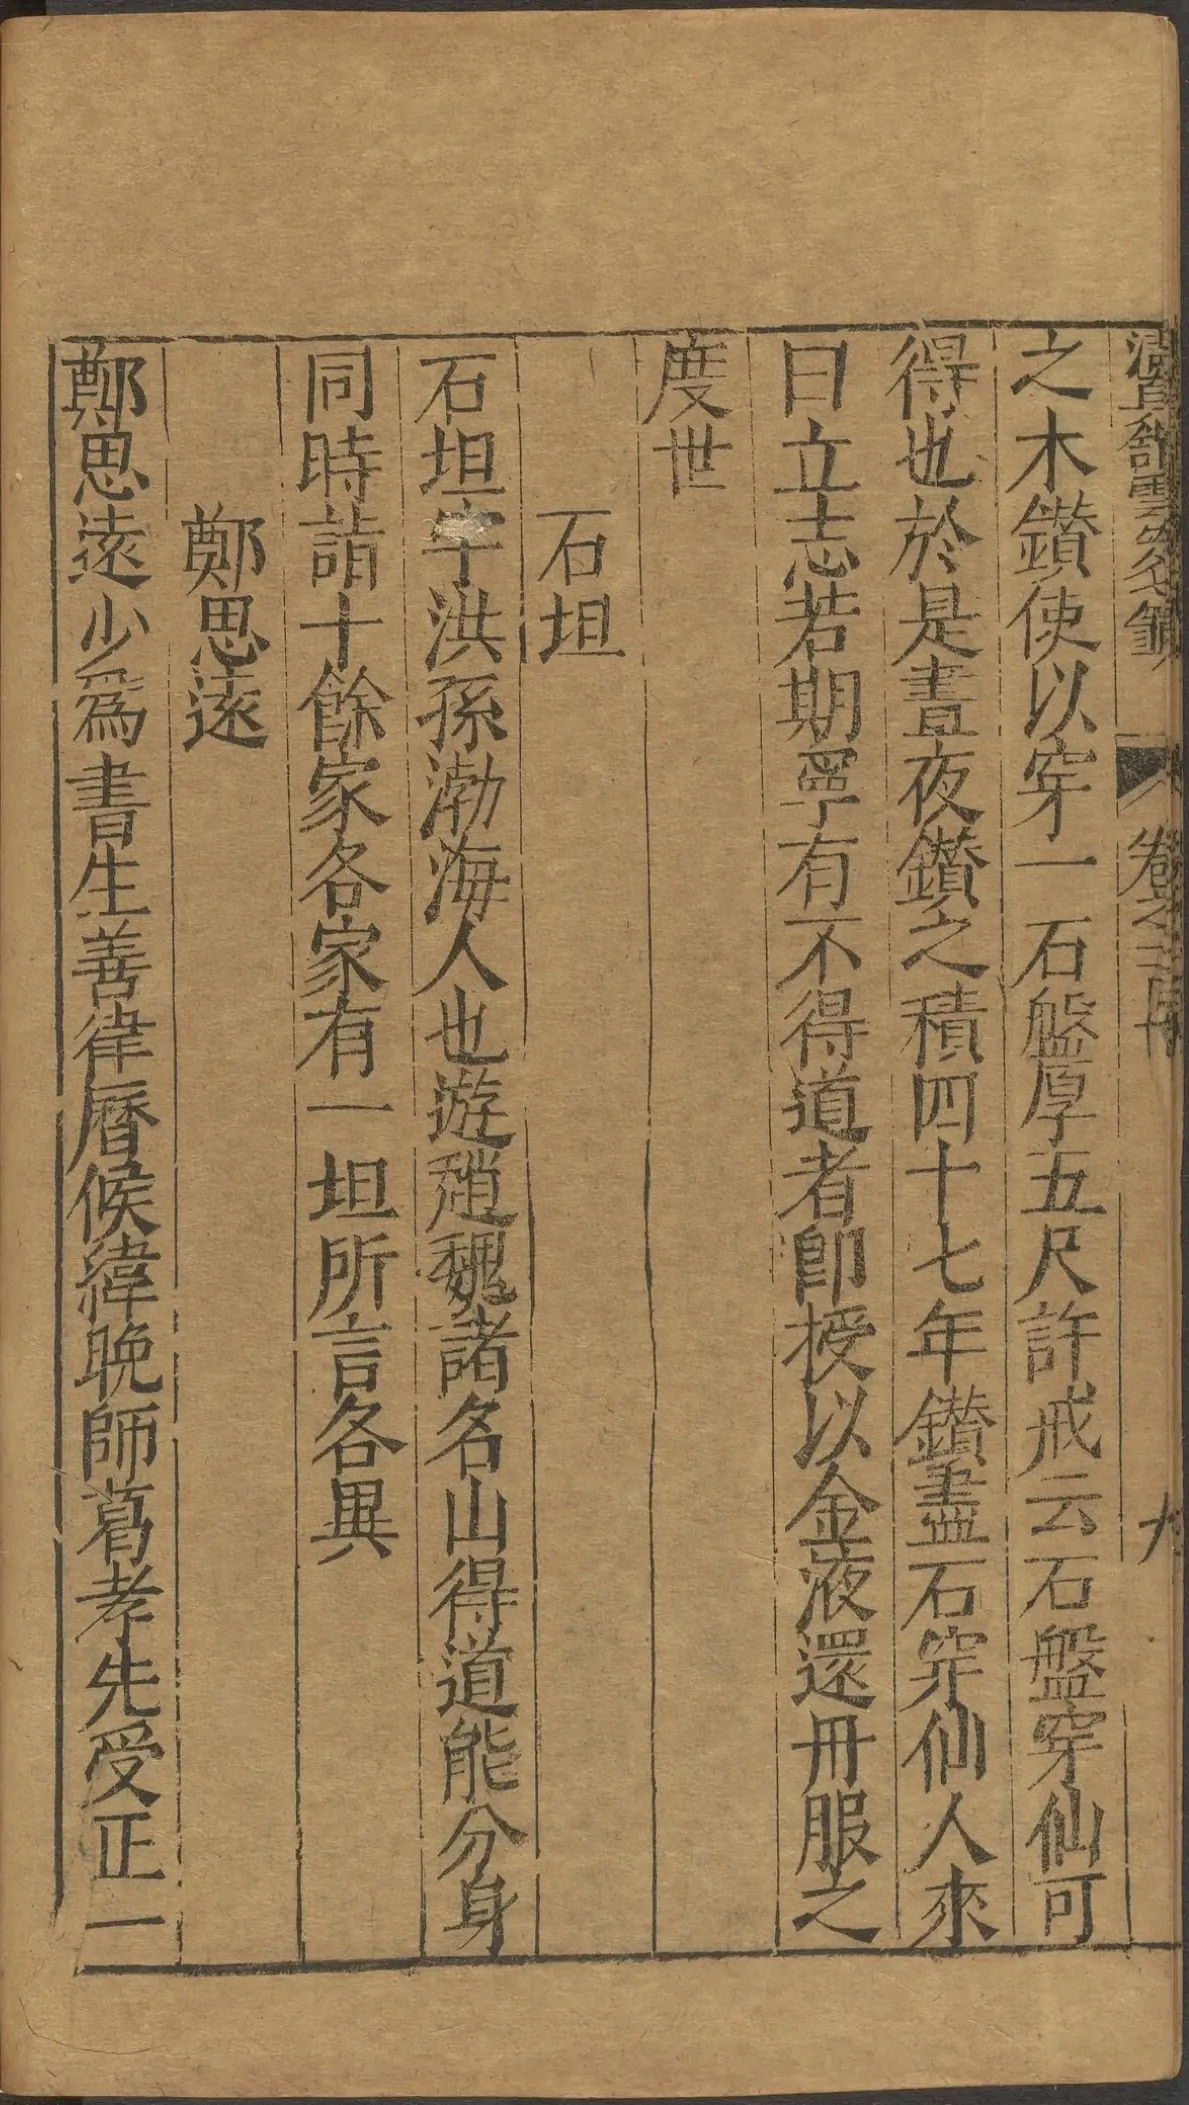 之木鑚使以穿一石盤厚五尺許戒云石盤穿仙可
得也於是晝夜鑚之積四十七年鑚盡石穿仙人來
曰立志若期寧有不得道者卽授以金液還丹服之
度世
石坦
石坦字洪孫渤海人也遊趙魏諸名山得道能分身
同時詣十餘家各家有一坦所言各異
鄭思遠
鄭思遠少爲書生善律曆候緯晩師葛孝先受正一